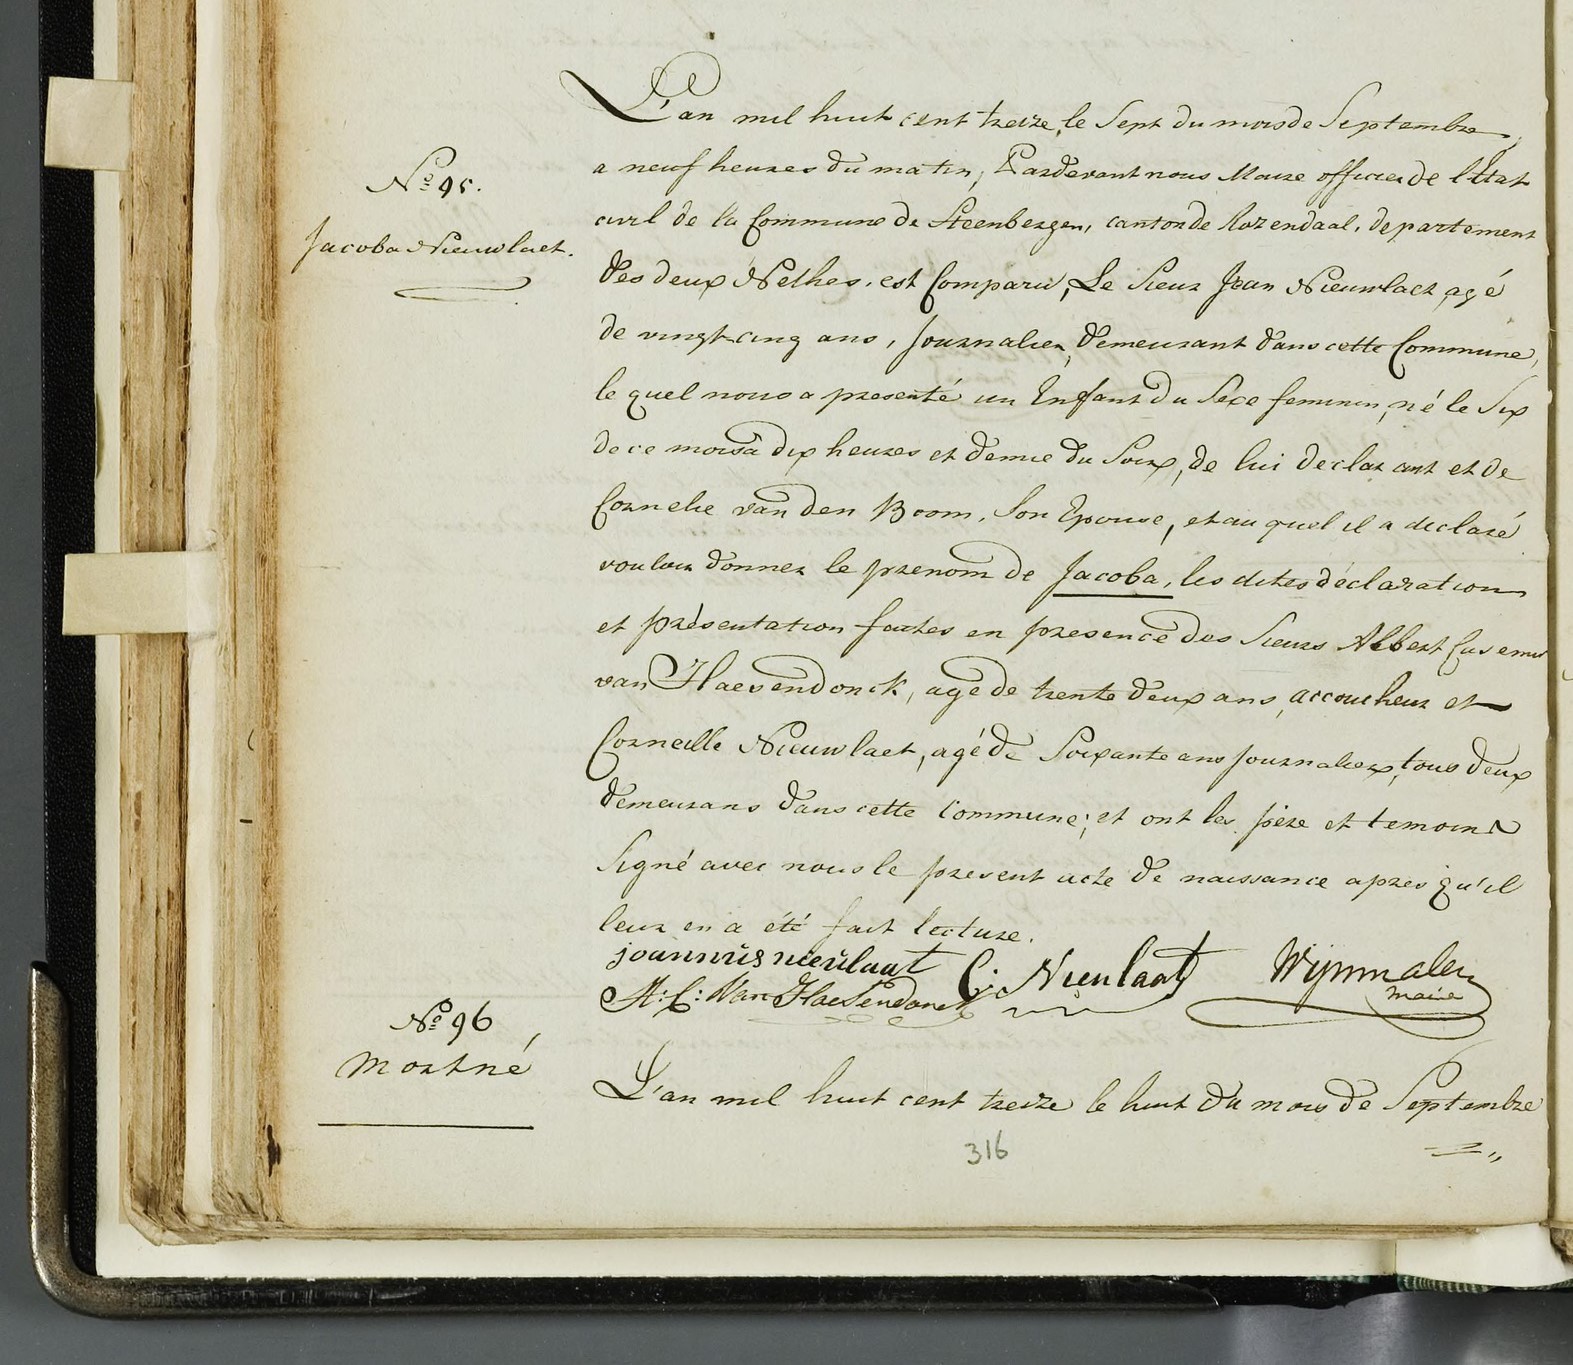 L'an mil huit cent treize, le Sept du mois de Septembre,
a neuf heures du matin, Pardevant nous Maire officier de l'Etat
N.o 95.
civil de la Commune de Steenbergen, canton de Rozendaal, departement
Jacoba Nieuwlaet.
des deux Nethes, est Comparu, Le Sieur Jean Nieuwlaet, agé
de vingt-cinq ans, Journalier, demeurant dans cette Commune,
le quel nous a presenté un Enfant du Sexe feminin, né le Six
de ce mois à dix heures et demie du Soir, de lui declarant et de
Cornelie van den Boom, Son Epouse, et au quel il a declaré
vouloir donner le prenom de Jacoba, les dites déclaration
et présentation faites en presence des Sieurs Albert
van Haesendonck, agé de trente deux ans, accoucheur et
Corneille Nieuwlaet, agé de Soixante ans Journalier, tous deux
demeurans dans cette Commune; et ont les père et temoins
Signé avec nous le present acte de naissance apres qu'il
leur en a été fait lecture.
joannus nieulaat C: Nieulaat Wijnmalen
A: C: Van Haesendonck maire
N.o 96
Mortné
L'an mil huit cent treize le huit du mois de Septembre
316